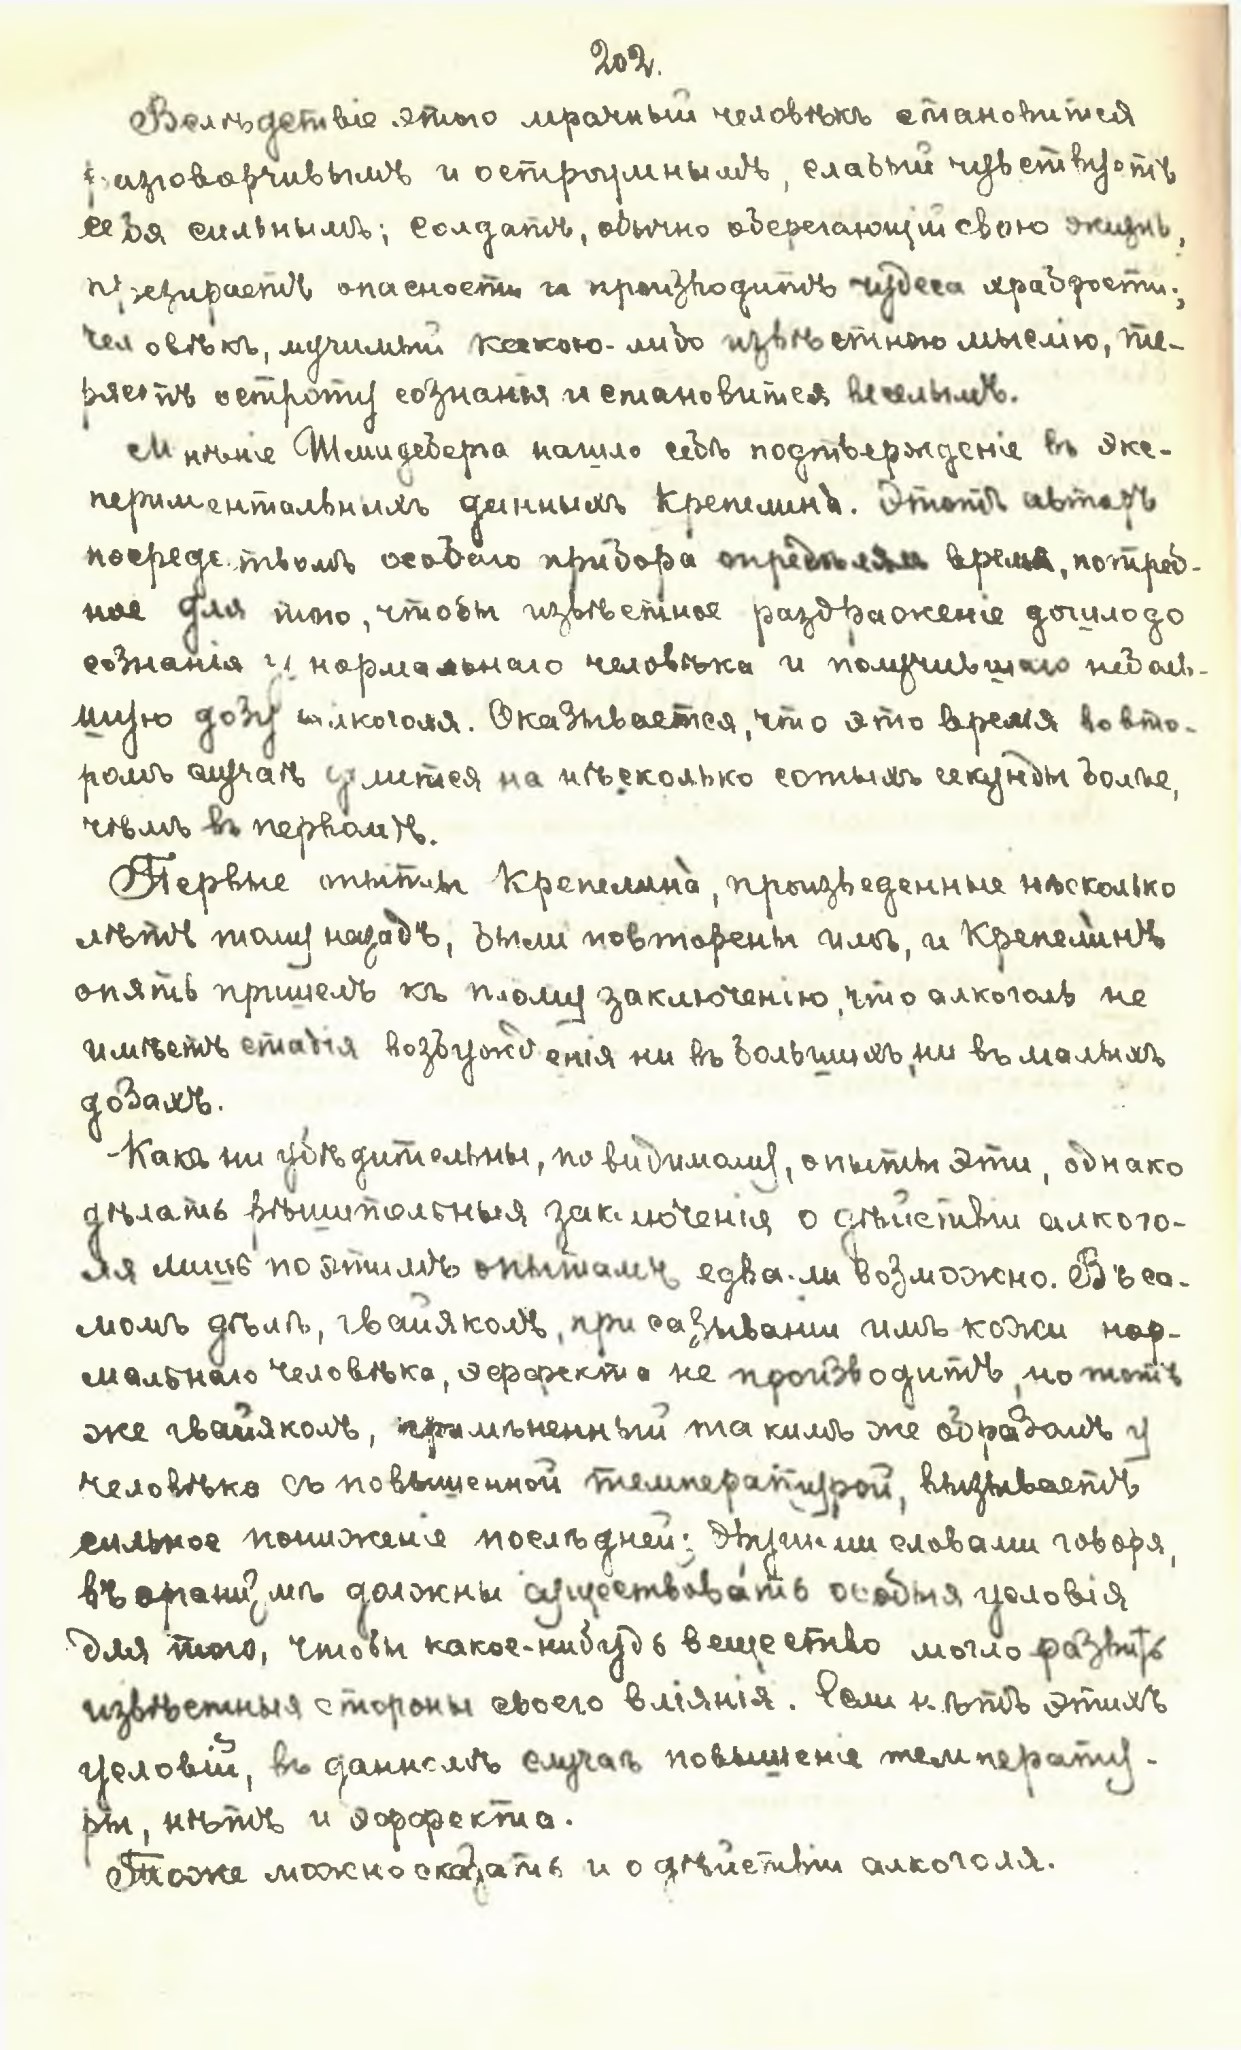 202.
Вслѣдствіе этого мрачный человѣкъ становится
разговорчивымъ и остроумнымъ, слабый чувствуетъ
себя сильнымъ; солдатъ, обычно оберегающій свою жизнь,
презираетъ опасности и производитъ чудеса храбрости;
человѣкъ, мучимый какою-либо извѣстною мыслію, те-
ряетъ остроту сознанія и становится веселымъ.
Мнѣніе Шмидеберга нашло себѣ подтвержденіе въ экс-
периментальныхъ данныхъ Крепелина. Этотъ авторъ
посредствомъ особаго прибора опредѣлялъ время, потреб-
ное для того, чтобы извѣстное раздраженіе дошло до
сознанія у нормальнаго человѣка и получившаго неболь-
шую дозу алкоголя. Оказывается, что это время во вто-
ромъ случаѣ длится на нѣсколько сотыхъ секунды болѣе,
чѣмъ въ первомъ.
Первые опыты Крепелина, произведенные нѣсколько
лѣтъ тому назадъ, были повторены имъ, и Крепелинъ
опять пришелъ къ тому заключенію, что алкоголь не
имѣетъ стадія возбужденія ни въ большихъ, ни въ малыхъ
дозахъ.
Какъ ни убѣдительны, повидимому, опыты эти, однако
дѣлать рѣшительныя заключенія о дѣйствіи алкого-
ля лишь по этимъ опытамъ едва-ли возможно. Въ са-
момъ дѣлѣ, гваяколъ, при смазываніи имъ кожи нор-
мальнаго человѣка, эффекта не производитъ, но тотъ
же гваяколъ, примѣненный такимъ же образомъ у
человѣка съ повышенной температурой, вызываетъ
сильное пониженіе послѣдней; другими словами говоря,
въ организмѣ должны существовать особыя условія
для того, чтобы какое-нибудь вещество могло развить
извѣстныя стороны своего вліянія. Если нѣтъ этихъ
условій, въ данномъ случаѣ повышеніе температу-
ры, нѣтъ и эффекта.
Тоже можно сказать и о дѣйствіи алкоголя.